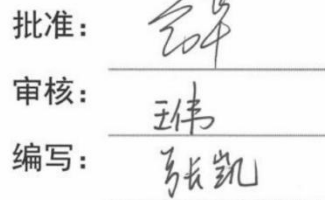 批准：
审核： 王伟
编写： 张凯